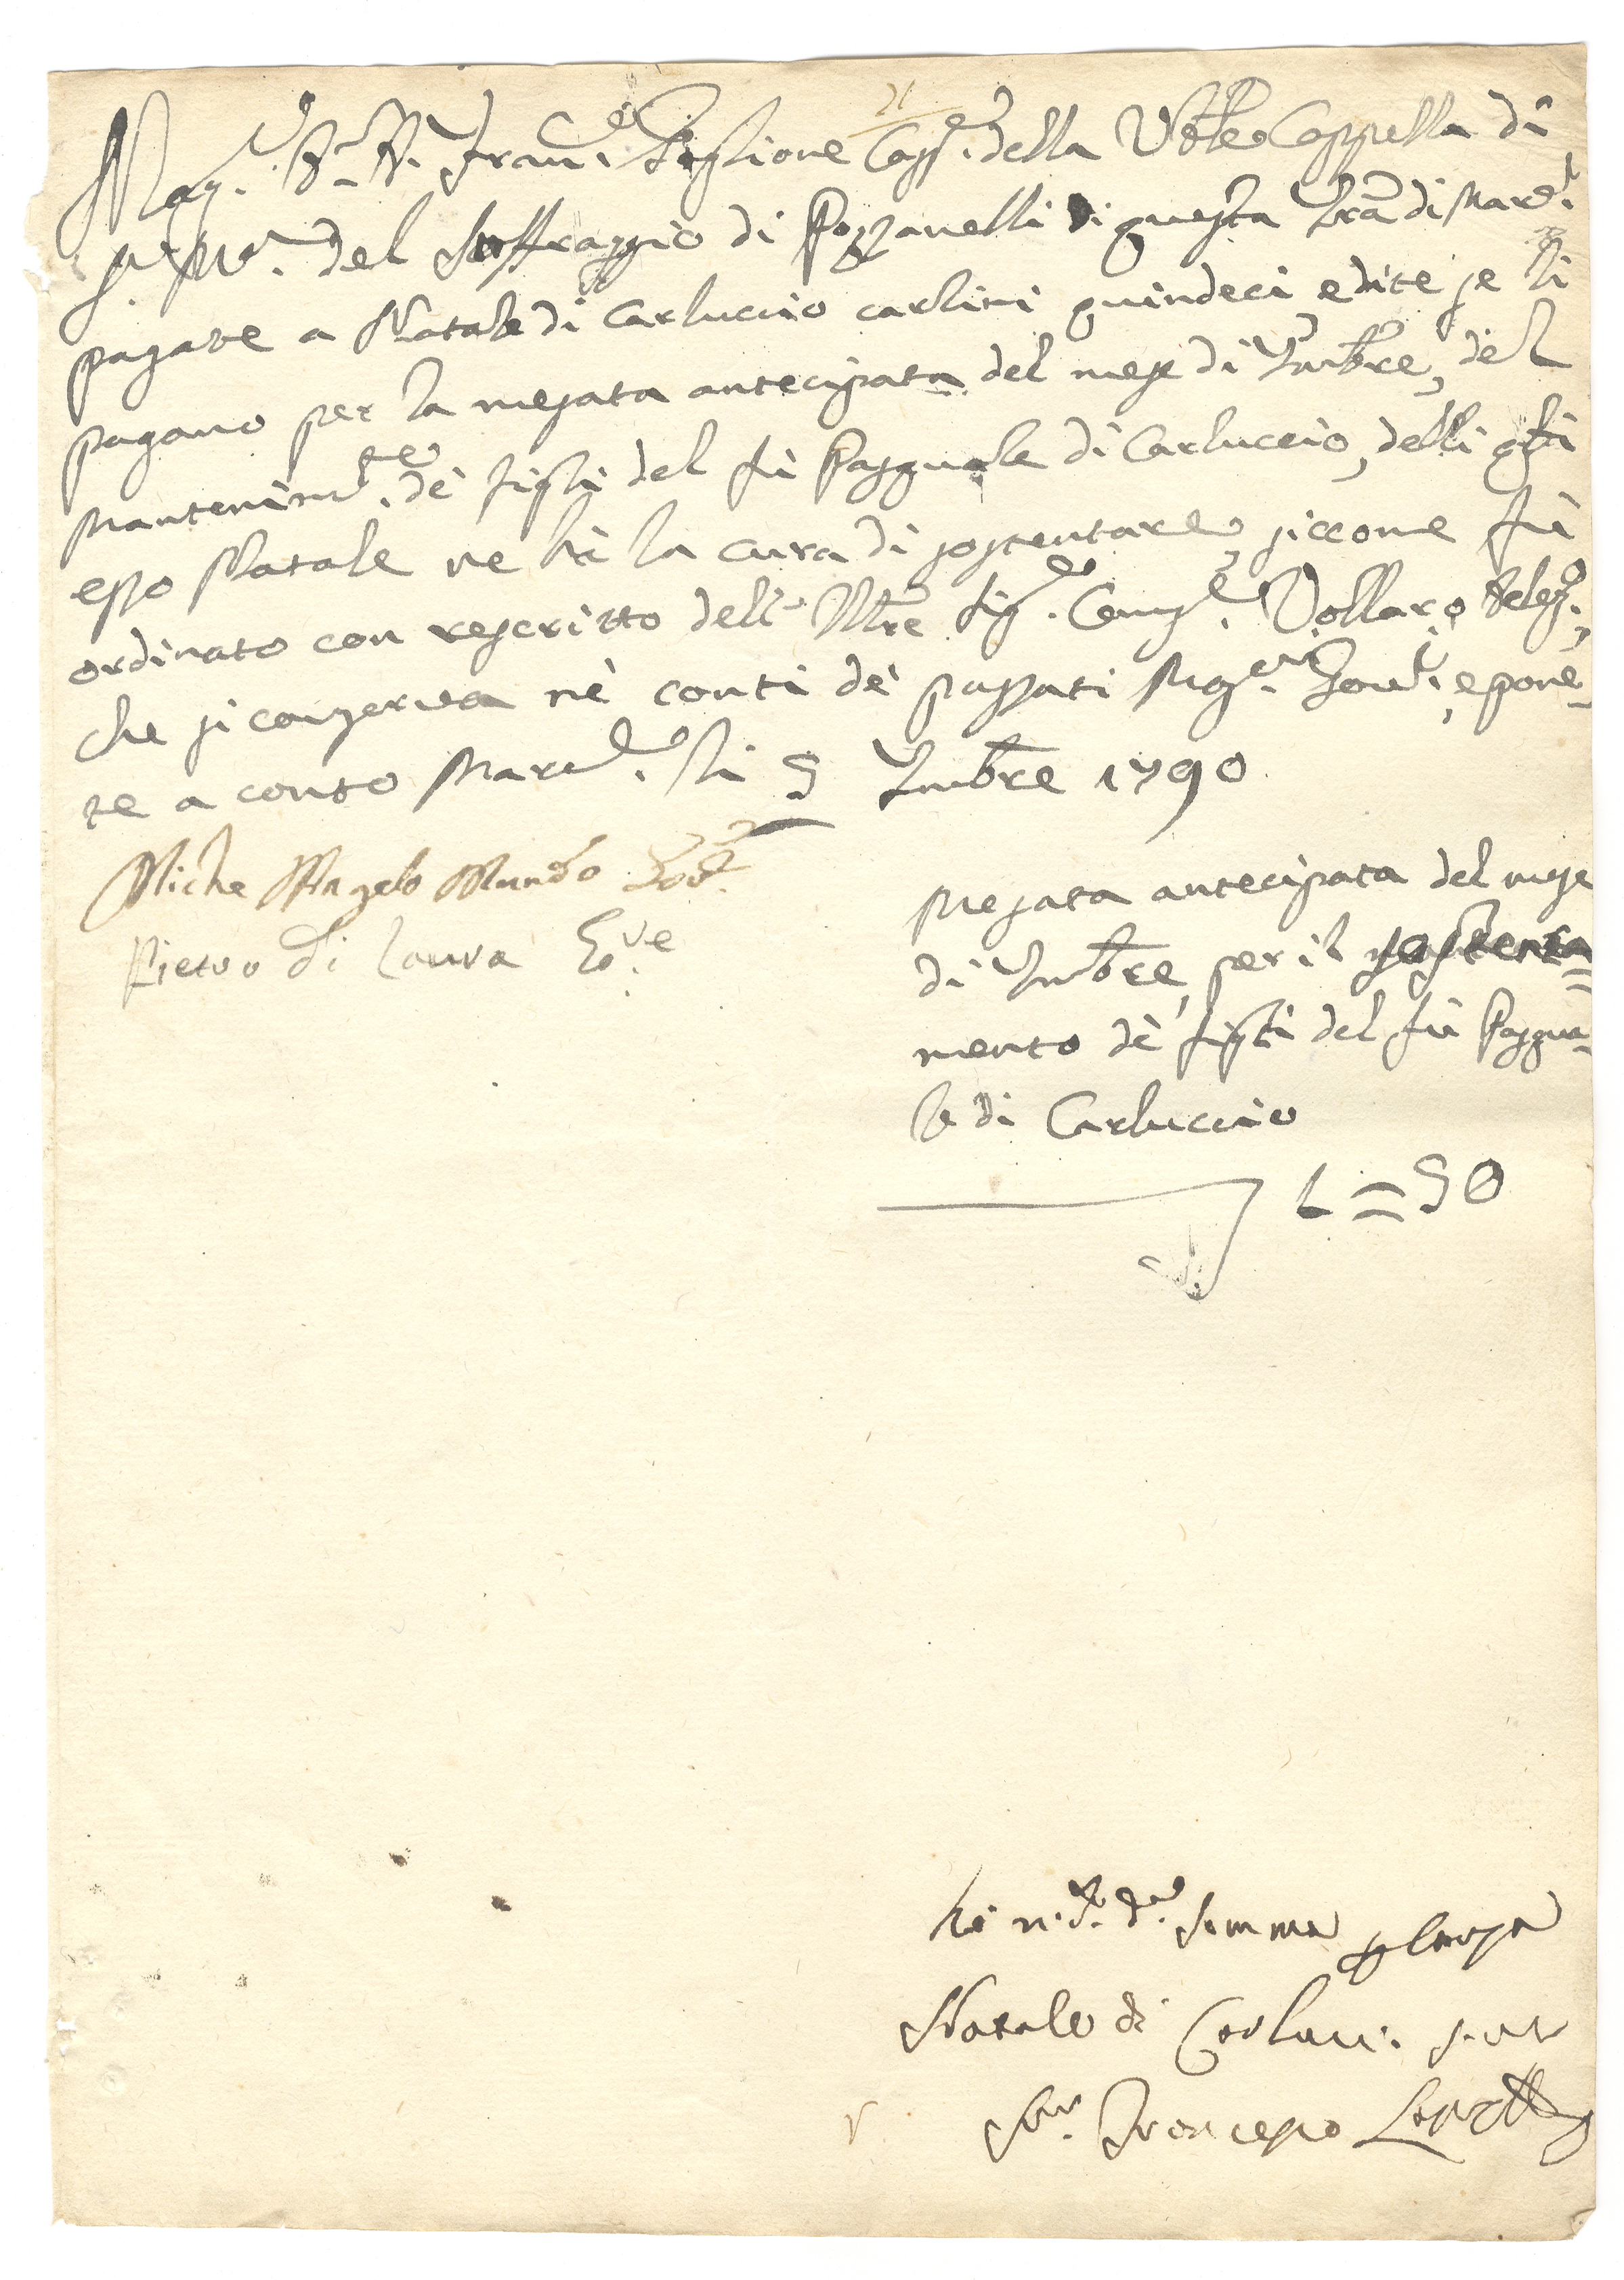 21
Mag.co Franc.o Castione Cass.e della Vble Cappella di
S. M.a del Suffraggio di Pozzanelli di questa Trã di Mard.i
pagate a Natale di Carluccio carlini quindeci e dite se li
pagano per la mesata antecipata del mese di Xmbre, del
mantenim.to de' figli del fù Pasquale di Carluccio, delli qli
esso Natale ne hà la cura di sostentare, siccome fù
ordinato con rescritto dell' Illre Sig.e Cons.e Vollaro Deleg.o,
che si conserva nè conti de' passati Mg.ci Gov.i, e pone-
te a conto Marcl.e li 5 Xmbre 1790
Miche Angelo Mundo Gov.e
Pietro di Laura Go.ve
Mesata antecipata del mese
di Xmbre, per il sostenta=
mento de' figli del fù Pasqua-
le di Carluccio
1=50
hò d.a somma
Natale di Carlucci.
Francesco